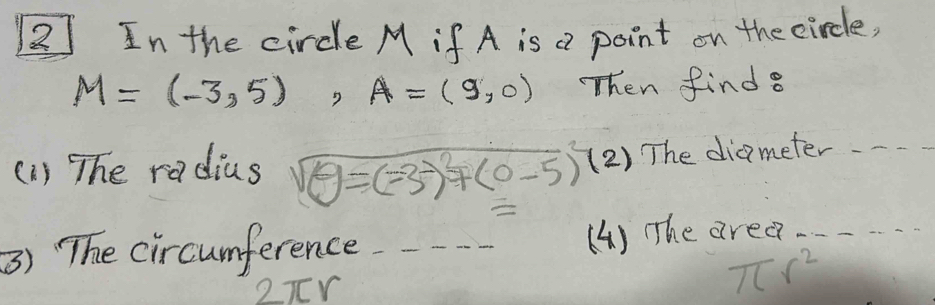 2 In the circle M if A is a point on the circle,
M = (-3,5) , A = (9,0) Then find:
(1) The radius √(9-(-3))²+(0-5)² (2) The diameter ----
3) The circumference -----
(4) The area ------
2πr
πr²